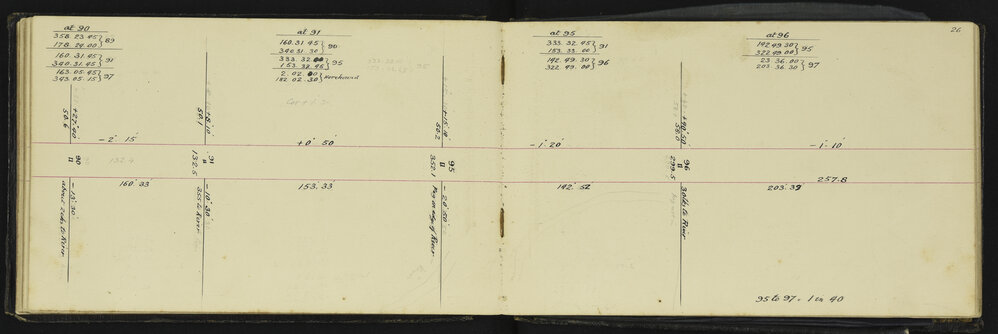 26
at 90
358. 23. 45 } 89
178. 24. 00
160. 31. 45 } 91
340. 31. 45
163. 05. 45 } 97
343. 05. 15
at 91
160. 31. 45 } 90
340. 31. 30
333. 32. 00 } 95
153. 32. 45
2. 02. 00
182. 02. 30
at 95
333. 32. 45 } 91
153. 33. 00
142. 49. 30 } 96
322. 49. 00
at 96
142 49. 30 } 95
322 49. 00
23. 36. 00 } 97
203. 36. 30
+27° 40'
50.6
+8° 10'
50.1
+15° 10'
50.2
58.0
- 2° 15'
+0° 50'
- 1° 20'
- 1° 10'
90
91
132.5
95
352.1
96
299.5
257.8
160° 33'
153. 33
142° 52'
203. 39'
- 13° 30'
about 2 chs to River
- 10° 30'
355 to River
- 20° 50'
Peg on edge of River
30 lks to River
95 to 97 = 1 in 40